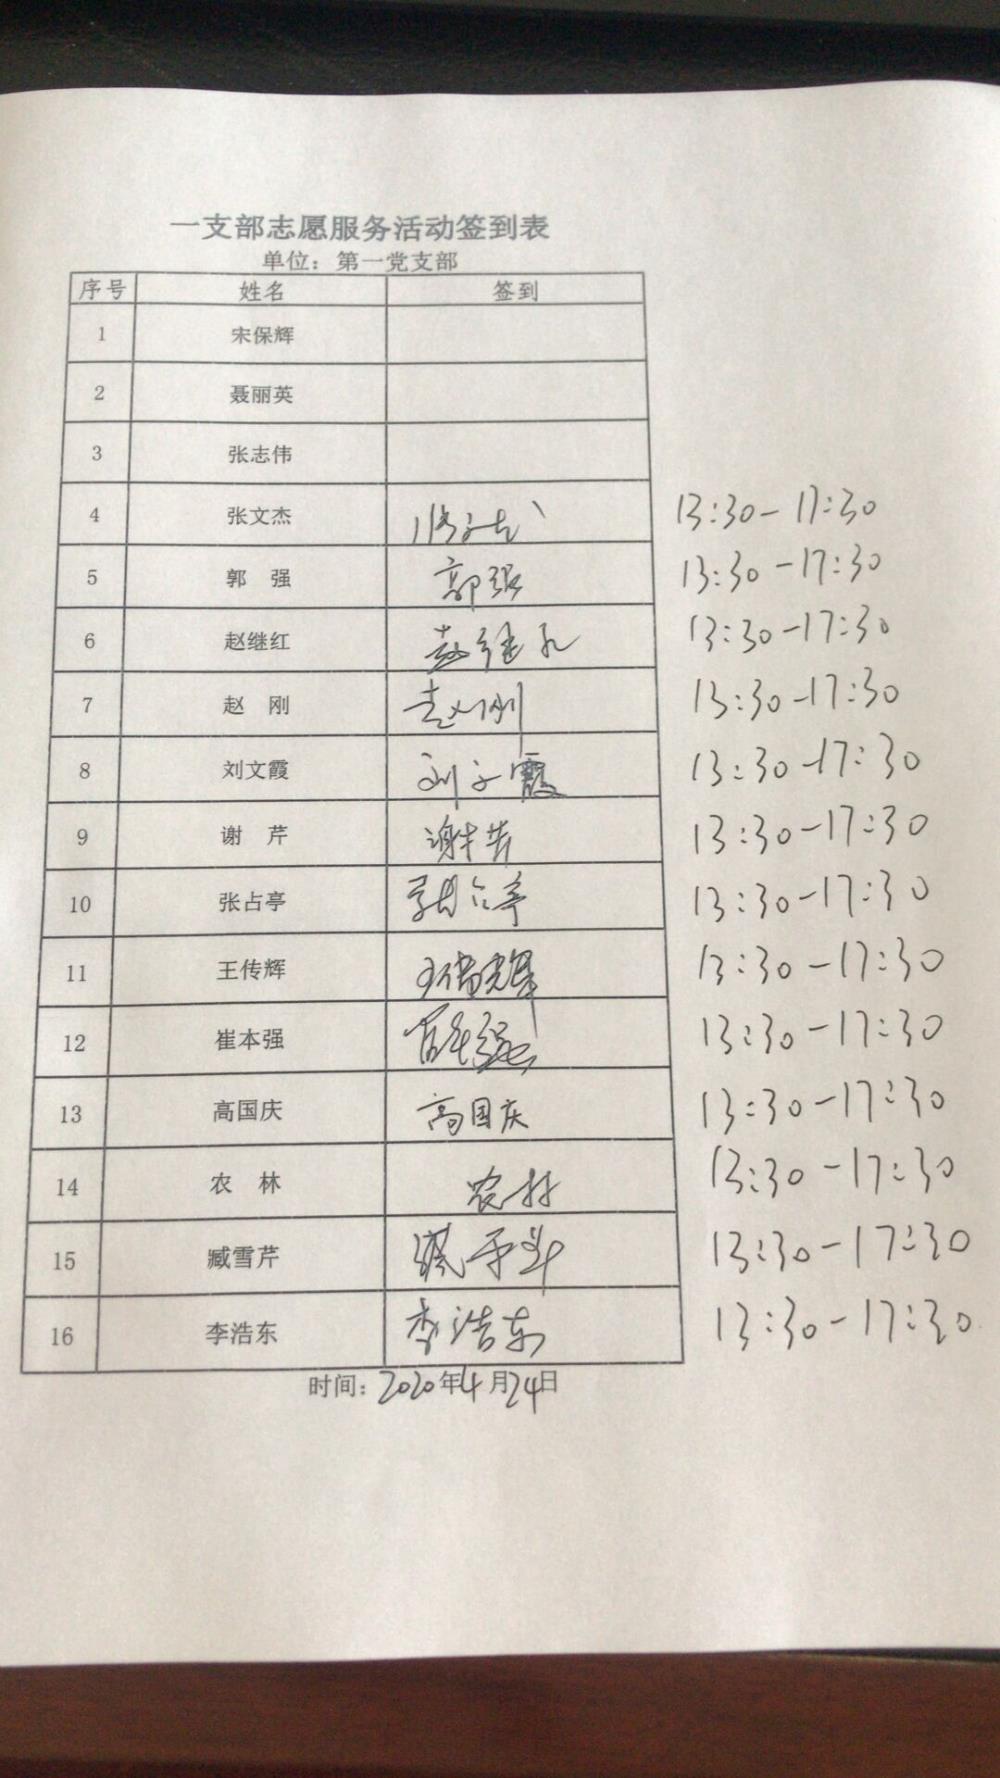 一支部志愿服务活动签到表
单位：第一党支部
序号 姓名 签到
1 宋保辉
2 聂丽英
3 张志伟
4 张文杰 张文杰 13:30-17:30
5 郭 强 郭强 13:30-17:30
6 赵继红 赵继红 13:30-17:30
7 赵 刚 赵刚 13:30-17:30
8 刘文霞 刘文霞 13:30-17:30
9 谢 芹 谢芹 13:30-17:30
10 张占亭 张占亭 13:30-17:30
11 王传辉 王传辉 13:30-17:30
12 崔本强 崔本强 13:30-17:30
13 高国庆 高国庆 13:30-17:30
14 农 林 农林 13:30-17:30
15 臧雪芹 13:30-17:30
16 李浩东 李浩东 13:30-17:30
时间：2020年4月24日